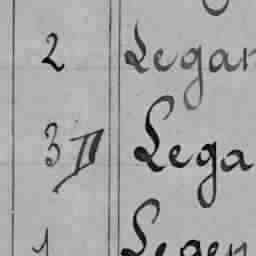 2 Legar
3 II Lega
1 Legen